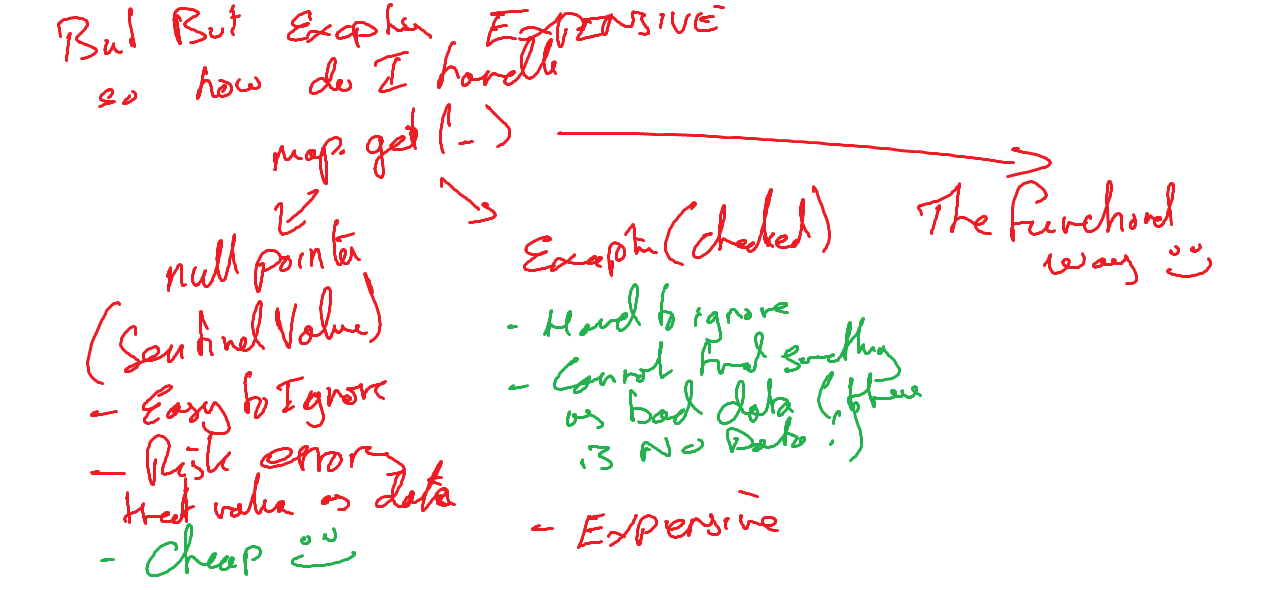 But But Exception EXPENSIVE
so how do I handle
map.get(_)
The Functional
way
null pointer
(Sentinel Value)
- Easy to Ignore
- Risk error,
treat value as data
- Cheap
Exception (checked)
- Hard to ignore
- Cannot treat something
as bad data (there
is No Data!)
- Expensive